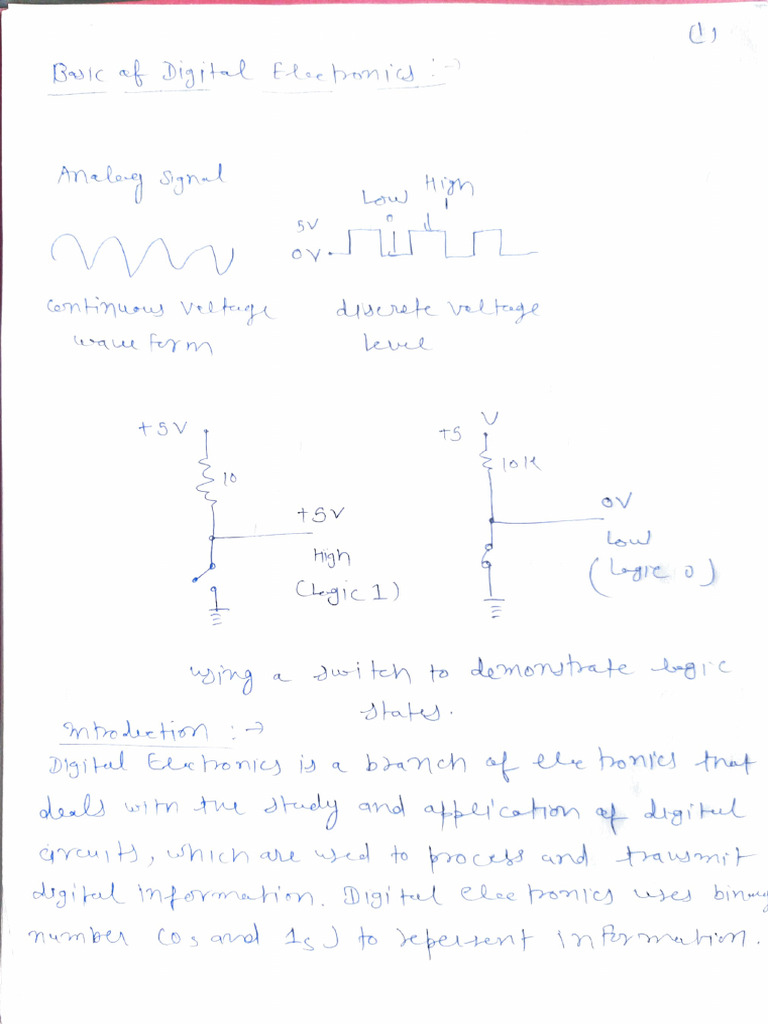 (1)
Basic of Digital Electronics :->
Analog Signal
Low High
5V
0V
Continuous voltage
wave form
discrete voltage
level
+5V
10
+5V
High
(Logic 1)
V
+5
10K
0V
Low
(Logic 0)
using a switch to demonstrate logic
states.
Introduction :->
Digital Electronics is a branch of electronics that
deals with the study and application of digital
circuits, which are used to process and transmit
digital information. Digital electronics uses binary
number (0s and 1s) to repersent information.